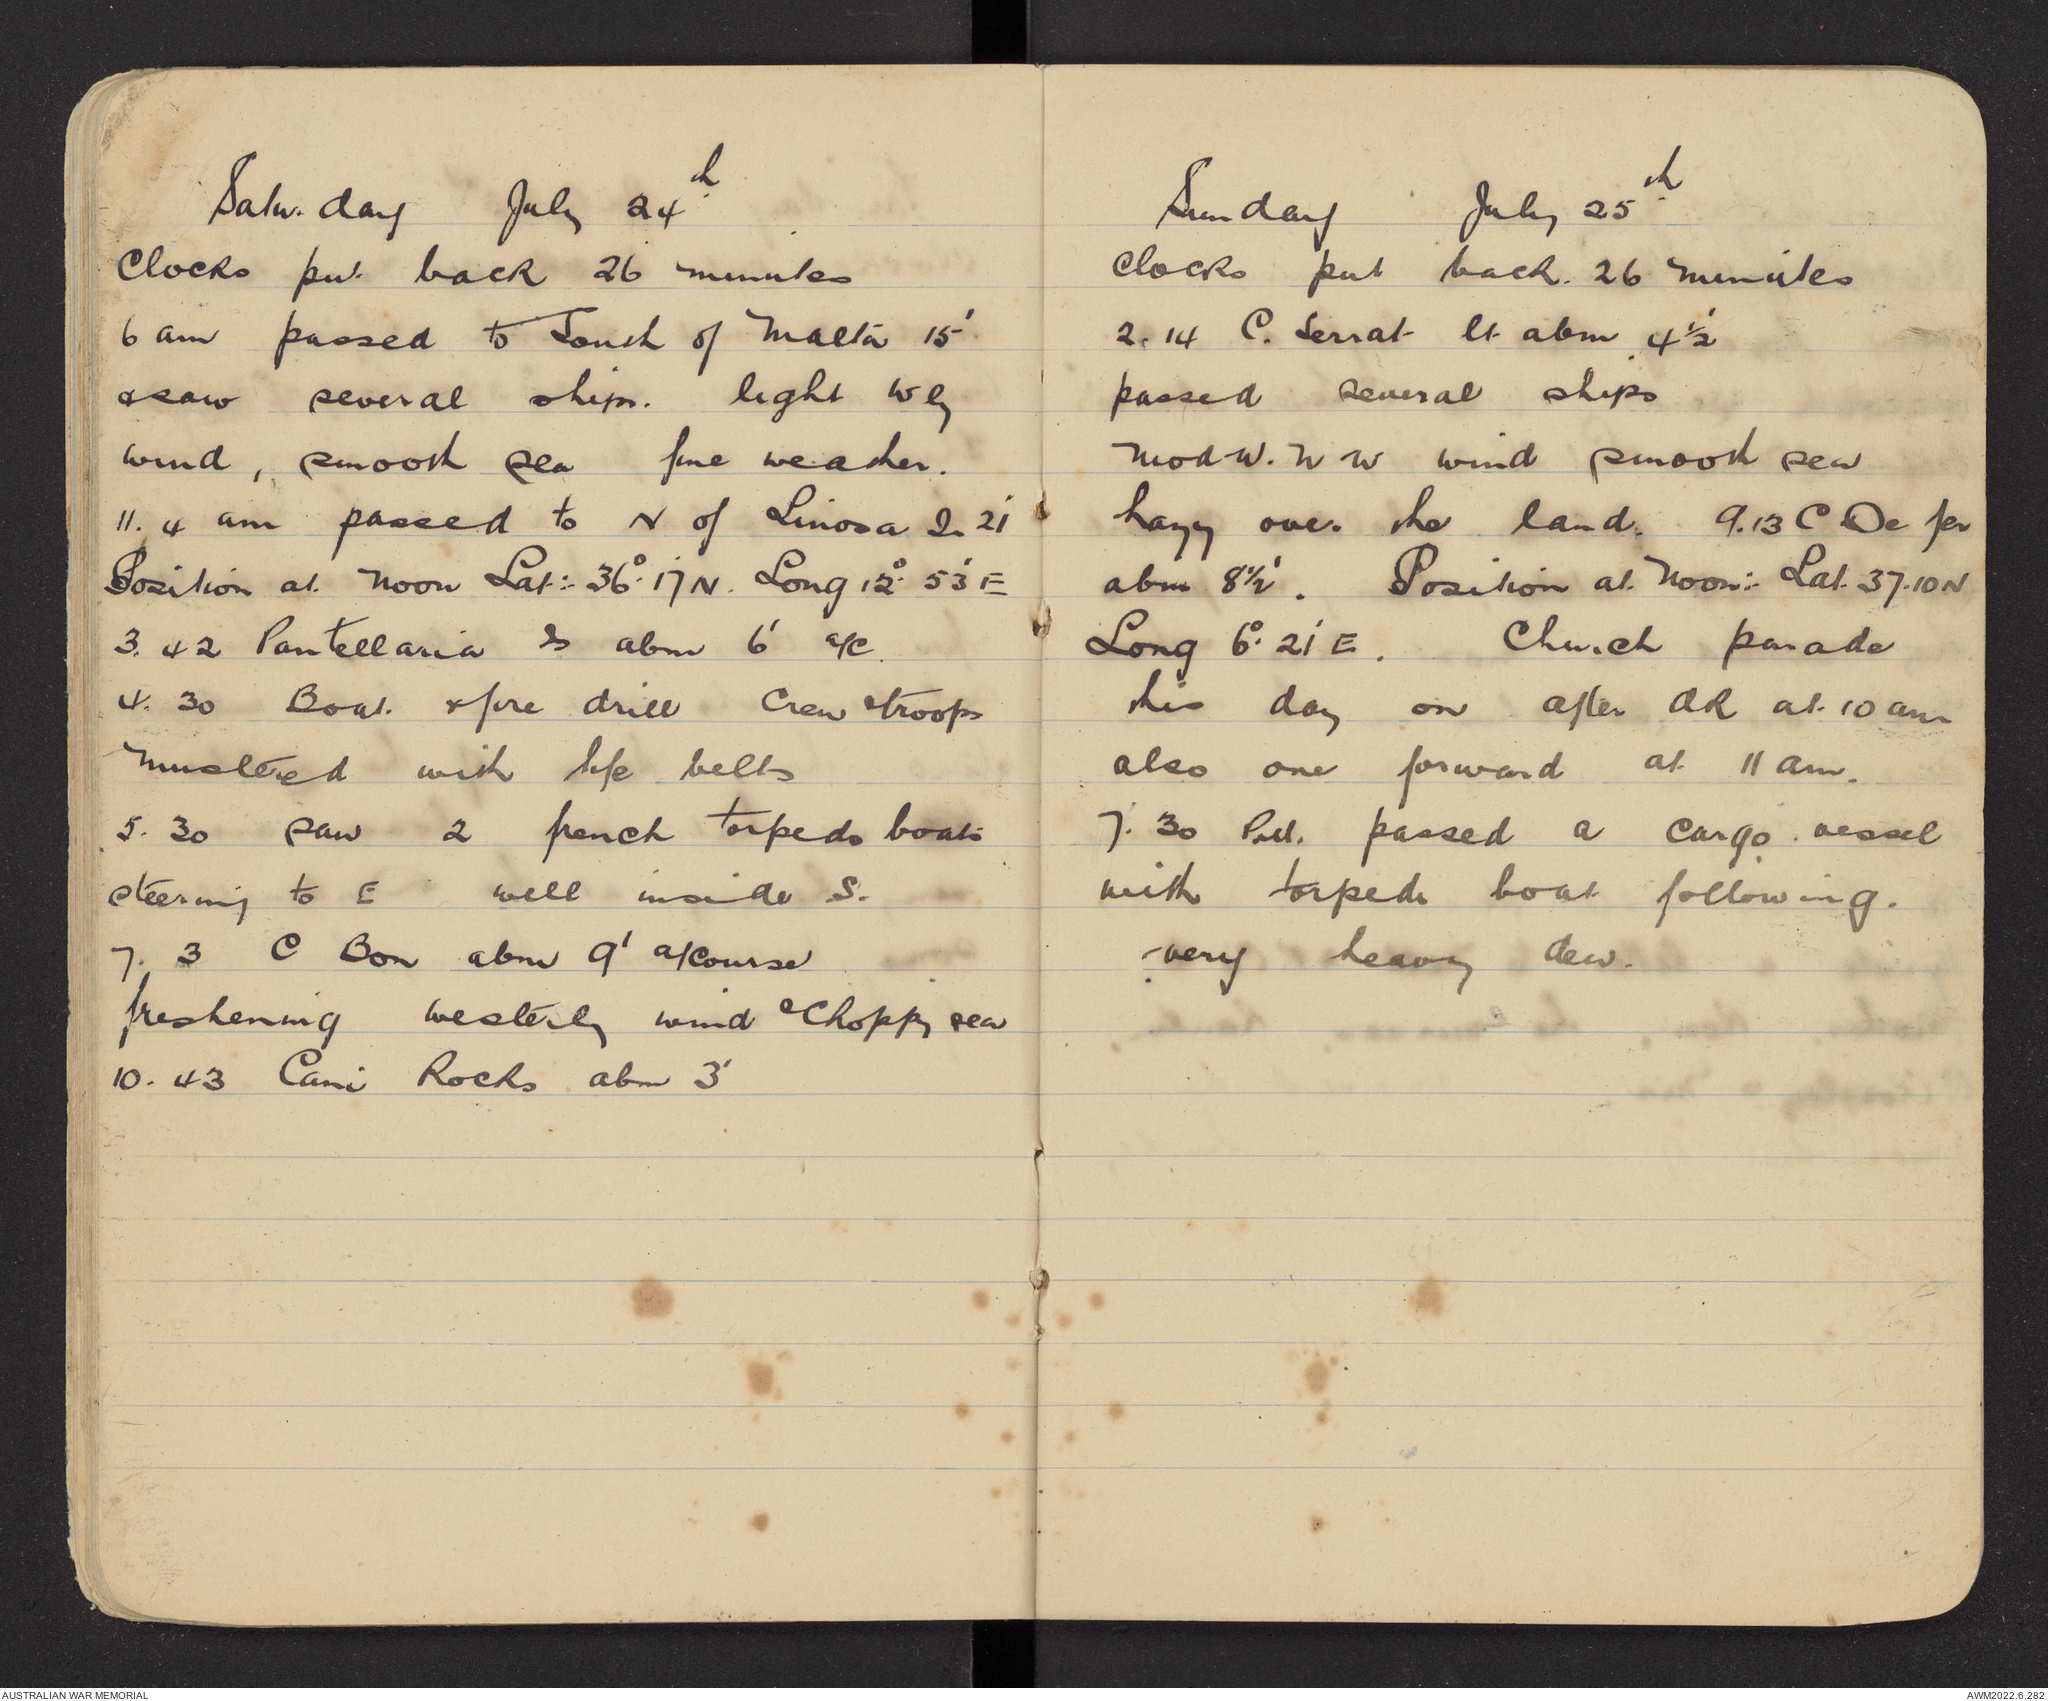 Saturday July 24th
Clocks put back 26 minutes
6 am passed to South of Malta 15'
& saw several ships. light Wly
wind, smooth sea fine weather.
11.4 am passed to N of Linosa Is 21'
Position at Noon Lat:- 36°.17'N. Long 12°. 53' E
3.42 Pantellaria Is abm 6' a/c
4.30 Boat & fire drill Crew & troops
mustered with life belts
5.30 saw 2 french torpedo boats
steering to E well inside S.
7.3 C Bon abm 9' a/course
freshening westerly wind & Choppy sea
10.43 Cani Rocks abm 3'
Sunday July 25th
Clocks put back. 26 minutes
2.14 C. Serrat lt abm 4½'
passed several ships
Mod W.N W wind smooth sea
hazy over the land. 9.13 C De fer
abm 8½'. Position at Noon:- Lat. 37.10N
Long 6°.21' E. Church parade
this day on after dk at 10 am
also one forward at 11 am.
7.30 passed a cargo vessel
with torpedo boat following.
very heavy dew.
AUSTRALIAN WAR MEMORIAL
AWM2022.6.282